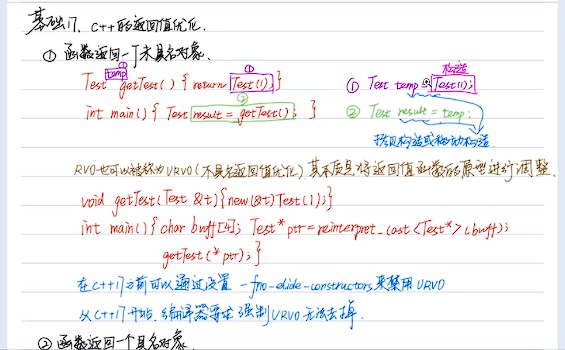 基础17、C++的返回值优化.
① 函数返回一个不具名对象.
temp ① ①
Test getTest() { return Test(1); }
②
int main() { Test result = getTest(); }
构造
① Test temp = Test(1);
② Test result = temp;
拷贝构造或移动构造
RVO也可以被称为URVO(不具名返回值优化) 其本质是将返回值函数的原型进行调整.
void getTest(Test &t){new(&t)Test(1);}
int main(){char buff[4]; Test* ptr=reinterpret_cast<Test*>(buff);
getTest(*ptr);}
在C++17之前可以通过设置 -fno-elide-constructors来禁用URVO
从C++17开始, 编译器要求强制URVO 无法去掉.
② 函数返回一个具名对象.